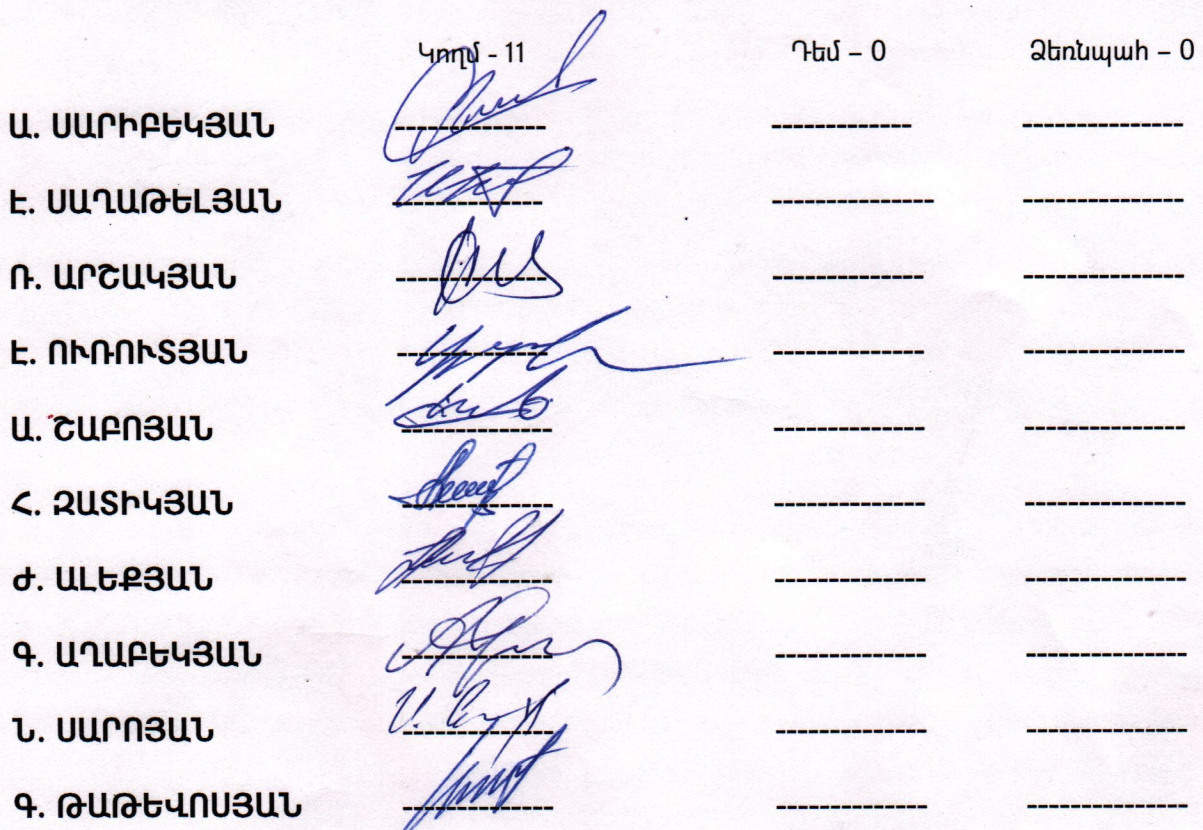 Կողմ - 11 Դեմ – 0 Ձեռնպահ – 0
Ա. ՍԱՐԻԲԵԿՅԱՆ -------------- ------------- ---------------
Է. ՍԱՂԱԹԵԼՅԱՆ -------------- --------------- ---------------
Ռ. ԱՐՇԱԿՅԱՆ -------------- -------------- ---------------
Է. ՈՒՌՈՒՏՅԱՆ -------------- -------------- ---------------
Ա. ՇԱԲՈՅԱՆ -------------- -------------- ---------------
Հ. ԶԱՏԻԿՅԱՆ -------------- -------------- ---------------
Ժ. ԱԼԵՔՅԱՆ -------------- -------------- ---------------
Գ. ԱՂԱԲԵԿՅԱՆ -------------- -------------- ---------------
Ն. ՍԱՐՈՅԱՆ -------------- -------------- ---------------
Գ. ԹԱԹԵՎՈՍՅԱՆ -------------- -------------- ---------------